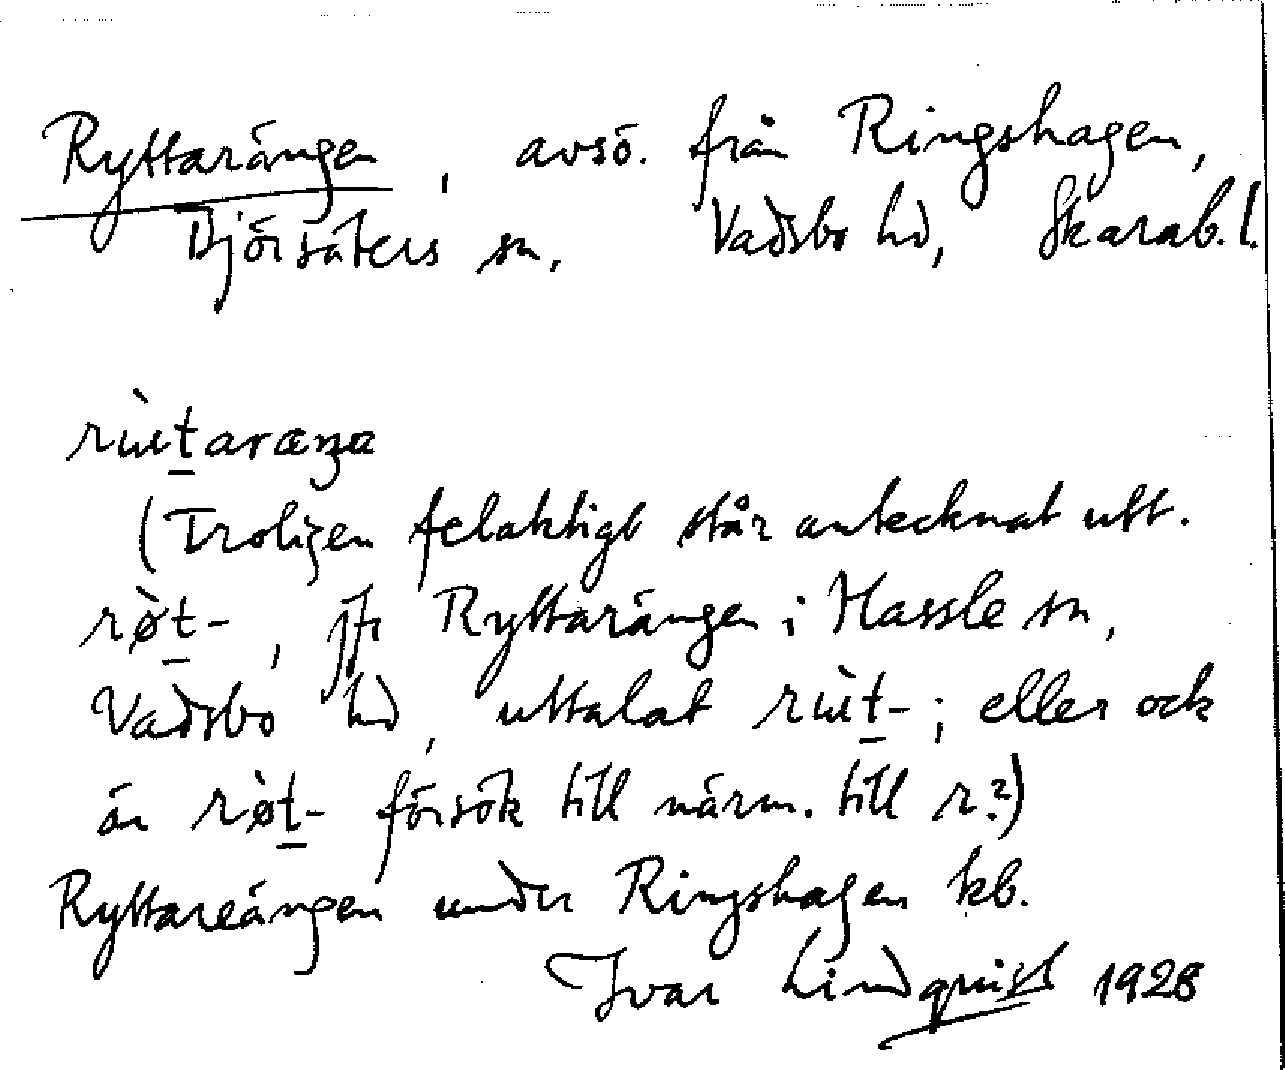 Ryttarängen, avsö. från Ringshagen,
Björsäters sn, Vadsbo hd, Skarab. l.
rùtaraŋa
(Troligen felaktigt står antecknat utt.
rø̀t-, jfr Ryttarängen i Hassle sn,
Vadsbo hd, uttalat rùt-; eller ock
är rø̀t- försök till närm. till r?)
Ryttareängen under Ringshagen kb.
Ivar Lindquist 1928